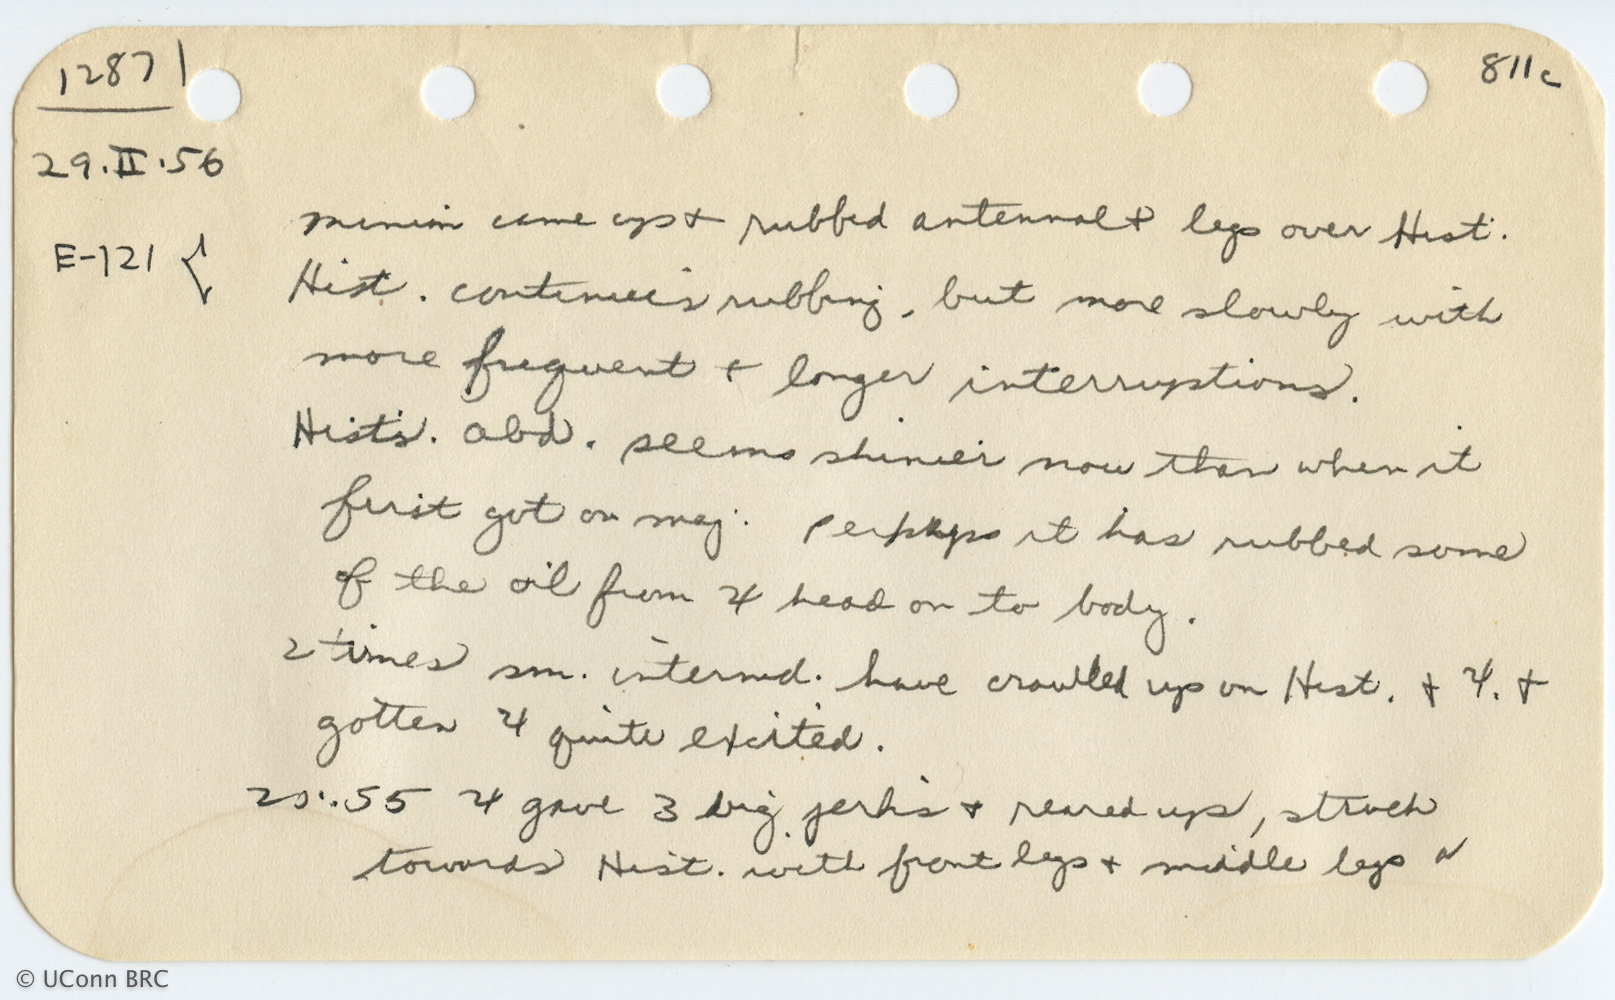 1287
811c
29.II.56
E-121 {
minim came up + rubbed antennal + legs over Hist.
Hist. continues rubbing, but more slowly with
more frequent + longer interruptions.
Hist's. abd. seems shinier now than when it
first got on maj. Perhaps it has rubbed some
of the oil from 4 head on to body.
2 times sm. intermd. have crawled up on Hist. + 4. +
gotten 4 quite excited.
20:.55 4 gave 3 big jerks + reared up, struck
towards Hist. with front legs + middle legs
© UConn BRC